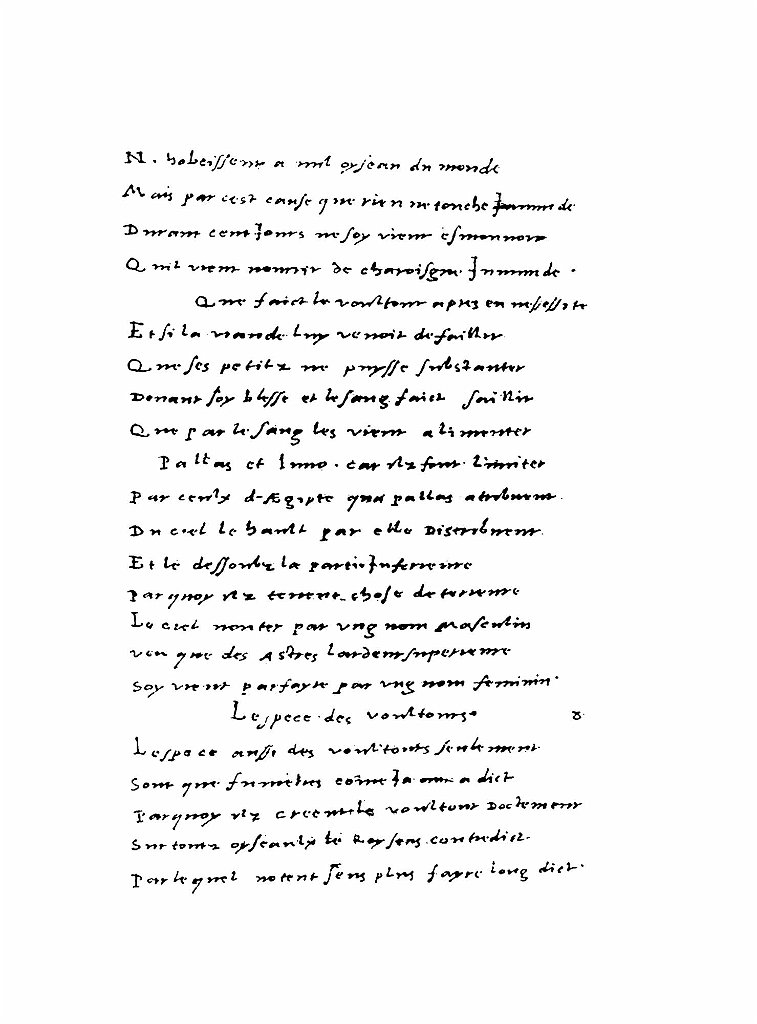 N. hobeissent a mil oyseau du monde
Mais par cest cause que rien ne touche Jmmunde
Durant cent Jours ne soy vient esmonnoir
Quil vient nourrir de charoisgne Jnmunde.
Que faict le voultour apres en nesessite
Et si la viande luy venoit defaillir
Que ses petitz ne puysse substanter
Donant soy blesse et le sang faict saillir
Que par le sang les vient alimenter
Pallas et Iuno. car ilz sont limiter
Par ceulx d'Ægipte qua pallas atribuent.
Du ciel le hault par elle Distribuent.
Et le dessoubz la partie Inferieure
Parquoy ilz tenent chose de terrienne
Le ciel noter par vng nom masculin
veu que des Astres lardeur superieure
Soy vient parfayre par vng nom feminin.
Lespece des voultours. 8
Lespece aussi des voultours seulement
Sont que fumeles come Ja on a dict
Parquoy ilz creent le voultour Doctement
Sur toutz oyseaulx le Roy sens contredict.
Par lequel notent sens plus fayre long dict.